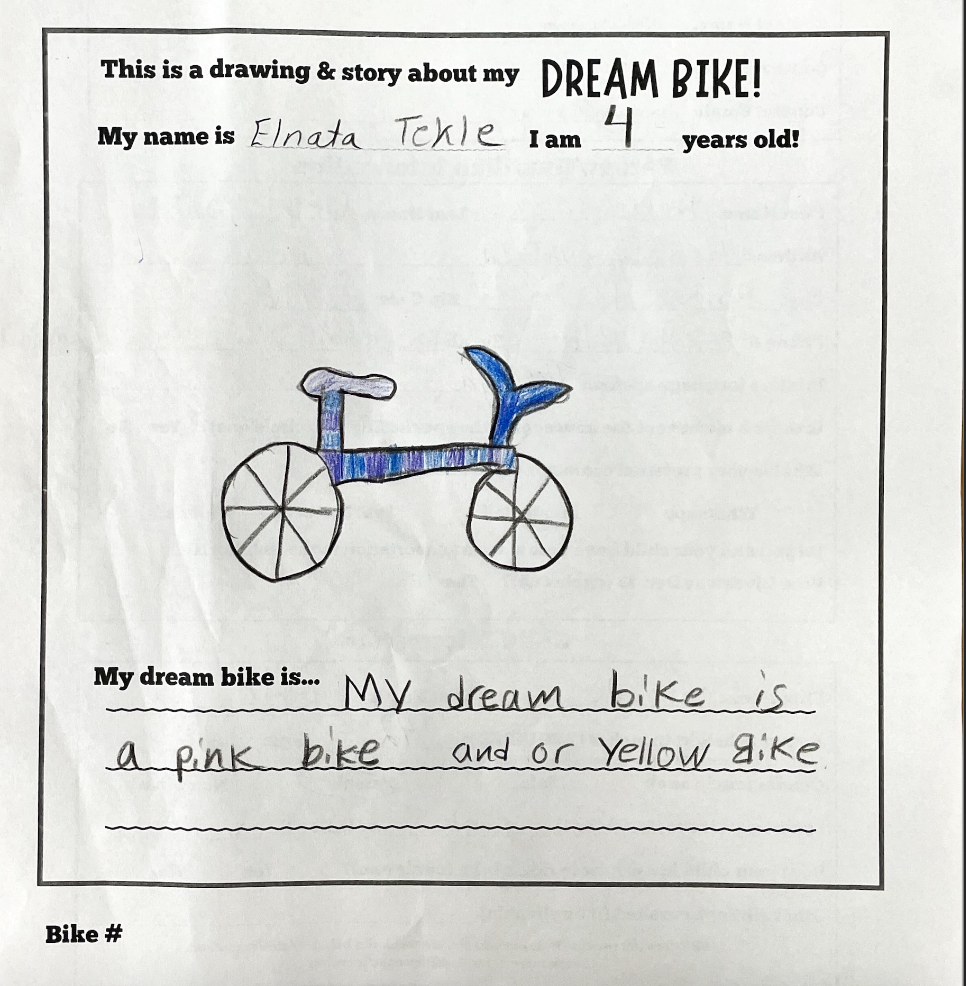 This is a drawing & story about my DREAM BIKE!
My name is Elnata Tekle I am 4 years old!
My dream bike is... My dream bike is
a pink bike and or yellow Bike
Bike #